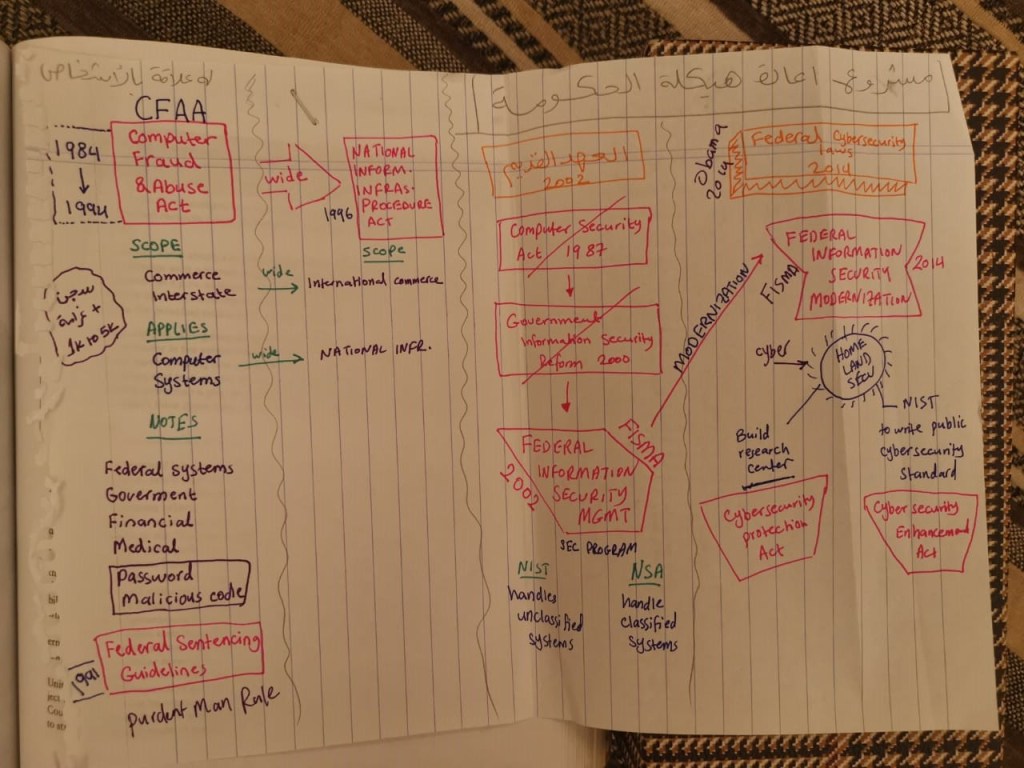 له علاقة بالأشخاص
CFAA
1984
1994
Computer
Fraud
& Abuse
Act
wide
NATIONAL
INFORM.
INFRAS-
PROCEDURE
ACT
1996
SCOPE
Commerce
Interstate
wide
SCOPE
International commerce
سجن
+ غرامة
1k to 5k
APPLIES
Computer
Systems
wide
NATIONAL INFR.
NOTES
Federal systems
Goverment
Financial
Medical
Password
Malicious code
1991
Federal Sentencing
Guidelines
purdent Man Rule
مشروع اعادة هيكلة الحكومة
العهد القديم
2002
Computer Security
Act 1987
Government
Information Security
Reform 2000
FEDERAL
INFORMATION
SECURITY
MGMT
2002
FISMA
SEC PROGRAM
NIST
handles
unclassified
systems
NSA
handle
classified
systems
MODERNIZATION
Obama
2014
Federal Cybersecurity
laws
2014
FISMA
FEDERAL
INFORMATION
SECURITY
MODERNIZATION
2014
cyber
HOME
LAND
SECU
Build
research
center
NIST
to write public
cybersecurity
standard
Cybersecurity
protection
Act
Cybersecurity
Enhancement
Act